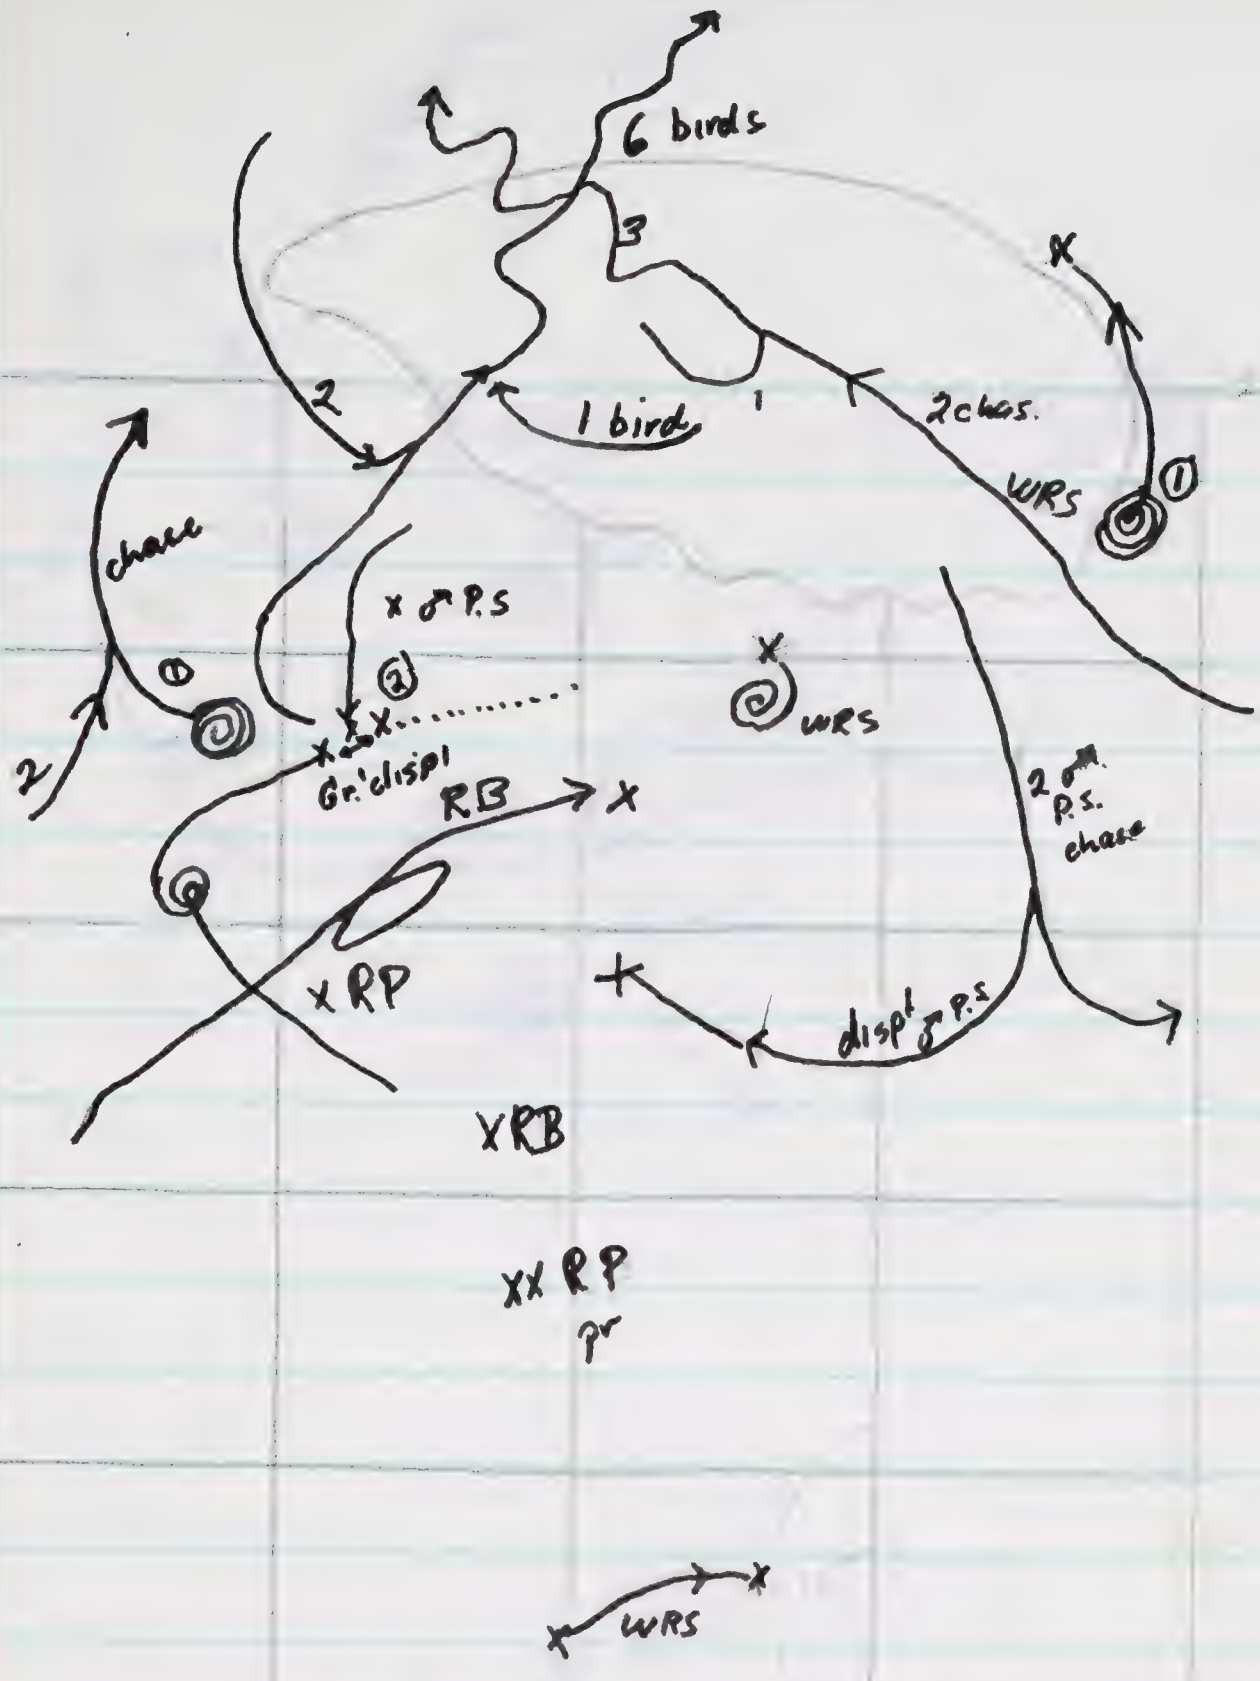 6 birds
3
2
1 bird
1
2 chas.
WRS
①
chase
x ♂ P.S
①
②
x
WRS
2
x x x
Gr. displ
2 ♂♂
P.S.
chase
RB
x
x RP
displ ♂ P.S
x RB
xx RP
pr
x
x
WRS